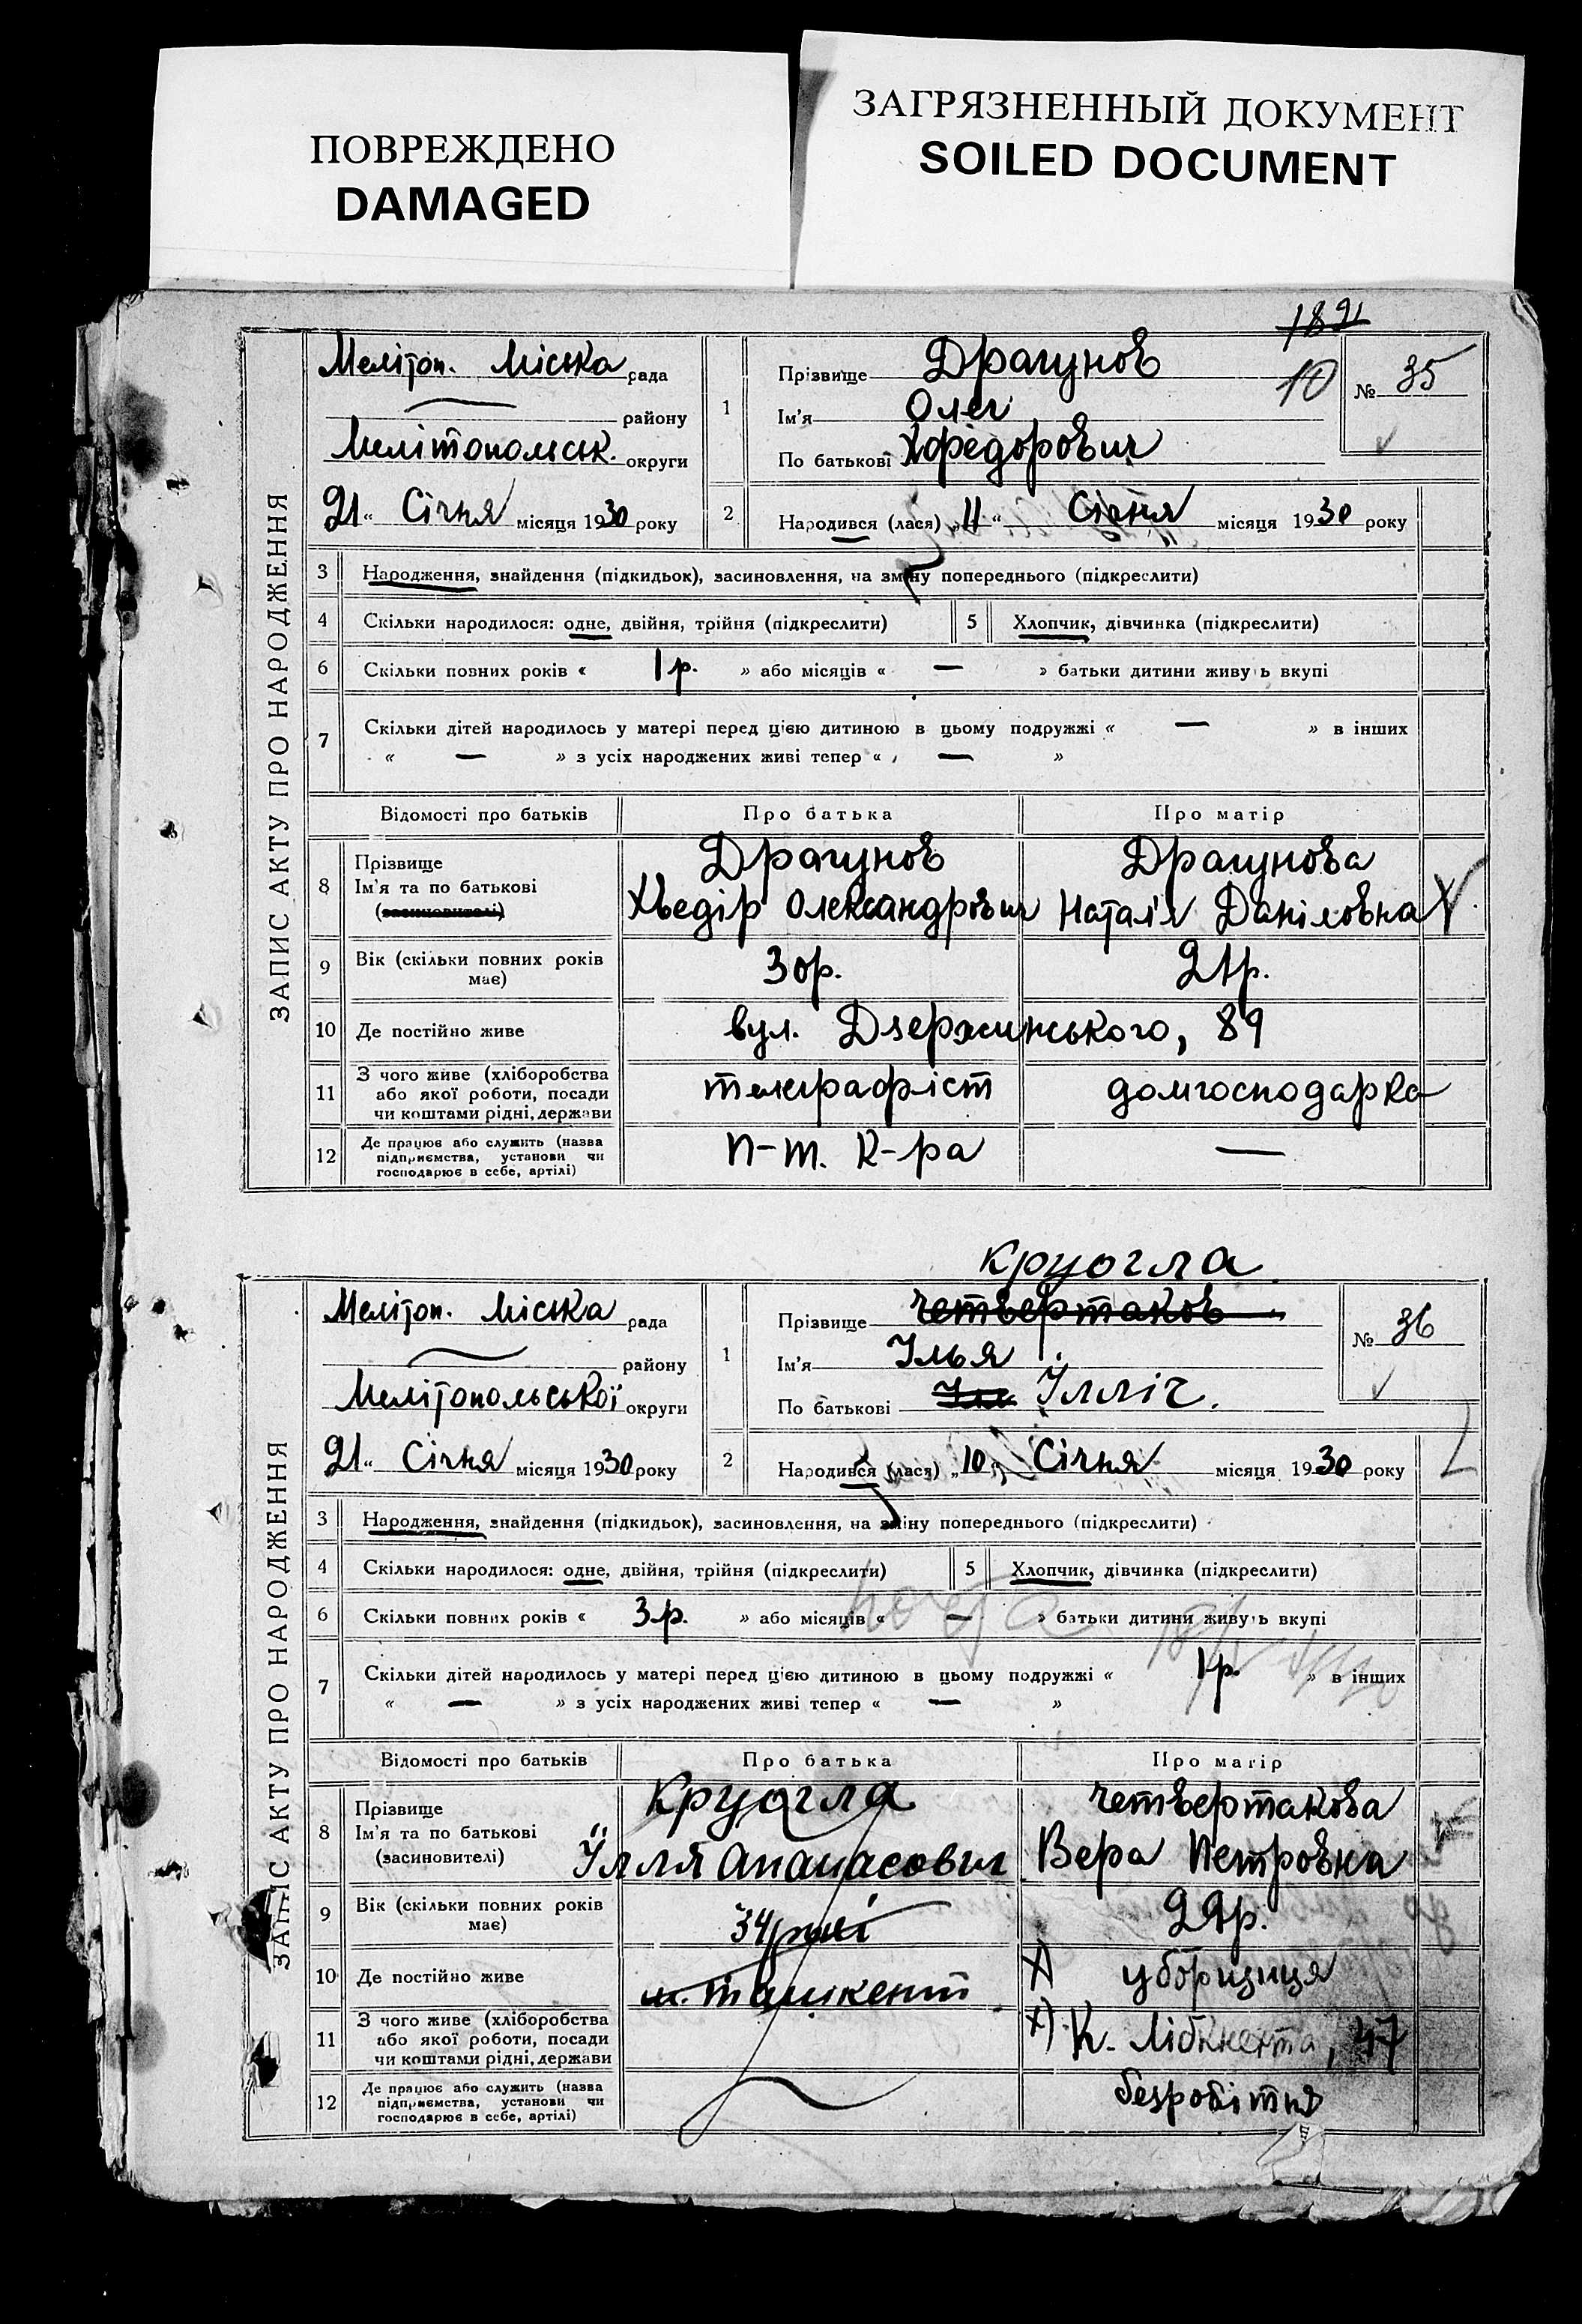 ПОВРЕЖДЕНО
DAMAGED
ЗАГРЯЗНЕННЫЙ ДОКУМЕНТ
SOILED DOCUMENT
ЗАПИС АКТУ ПРО НАРОДЖЕННЯ
Меліտоп. Міська рада
району
Мелітопольськ. округи
21 " Січня місяця 1930 року
1
Прізвище Драгунов
Ім'я Олег
По батькові Хфедорович
10
№ 35
2
Народився (лася) „11" Січня місяця 1930 року
3 Народження, знайдення (підкидьок), засиновлення, на зміну попереднього (підкреслити)
4 Скільки народилося: одне, двійня, трійня (підкреслити) 5 Хлопчик, дівчинка (підкреслити)
6 Скільки повних років « 1 р. » або місяців « — » батьки дитини живуть вкупі
7 Скільки дітей народилось у матері перед цією дитиною в цьому подружжі « — » в інших
« — » з усіх народжених живі тепер « — »
Відомості про батьків Про батька Про матір
8 Прізвище Ім'я та по батькові (засиновителі)
Драгунов Драгунова
Хведір Олександрович Наталія Даніловна
9 Вік (скільки повних років має) 30р. 21р.
10 Де постійно живе вул. Дзержинського, 89
11 З чого живе (хліборобства або якої роботи, посади чи коштами рідні, держави телеграфіст домгосподарка
12 Де працює або служить (назва підприємства, установи чи господарює в себе, артілі) п-т. к-ра —
ЗАПИС АКТУ ПРО НАРОДЖЕННЯ
Меліտоп. Міська рада
району
Мелітопольської округи
21 " Січня місяця 1930 року
Круогла
1
Прізвище Четвертаков
Ім'я Ілья
По батькові Ілл Ілліч.
№ 36
2
Народився (лася) „10" Січня місяця 1930 року
3 Народження, знайдення (підкидьок), засиновлення, на зміну попереднього (підкреслити)
4 Скільки народилося: одне, двійня, трійня (підкреслити) 5 Хлопчик, дівчинка (підкреслити)
6 Скільки повних років « 3 р. » або місяців « — » батьки дитини живуть вкупі
7 Скільки дітей народилось у матері перед цією дитиною в цьому подружжі « 1 р. » в інших
« — » з усіх народжених живі тепер « — »
Відомості про батьків Про батька Про матір
8 Прізвище Ім'я та по батькові (засиновителі)
Круогла Четвертакова
Ілля Апанасович Вера Петровна
9 Вік (скільки повних років має) 34 29р.
10 Де постійно живе м. Ташкент х) уборщиця
11 З чого живе (хліборобства або якої роботи, посади чи коштами рідні, держави х) К. Лібкнехта, 47
12 Де працює або служить (назва підприємства, установи чи господарює в себе, артілі) безробітня